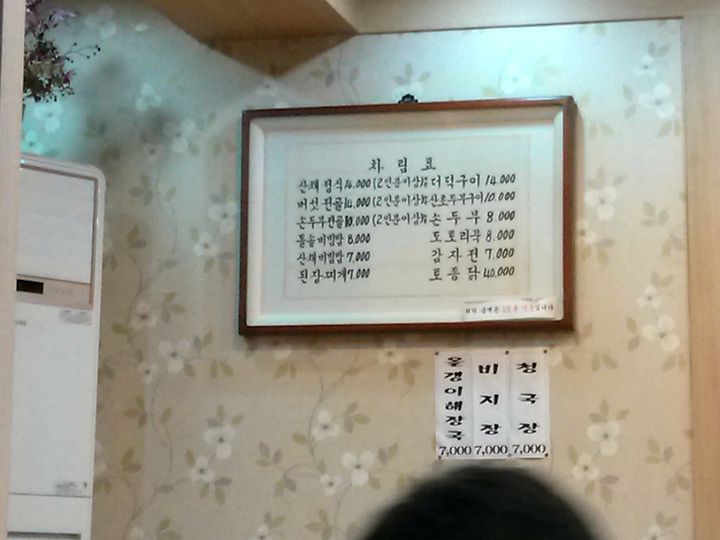 차림표
산채정식 14.000 (2인분이상)
버섯전골 14.000 (2인분이상)
손두부전골 10.000 (2인분이상)
돌솥비빔밥 8,000
산채비빔밥 7,000
된장찌개 7,000
더덕구이 14.000
산초두부구이 10.000
손두부 8.000
도토리묵 8.000
감자전 7.000
토종닭 40.000
금액은
올갱이해장국
7,000
비지장
7,000
청국장
7,000